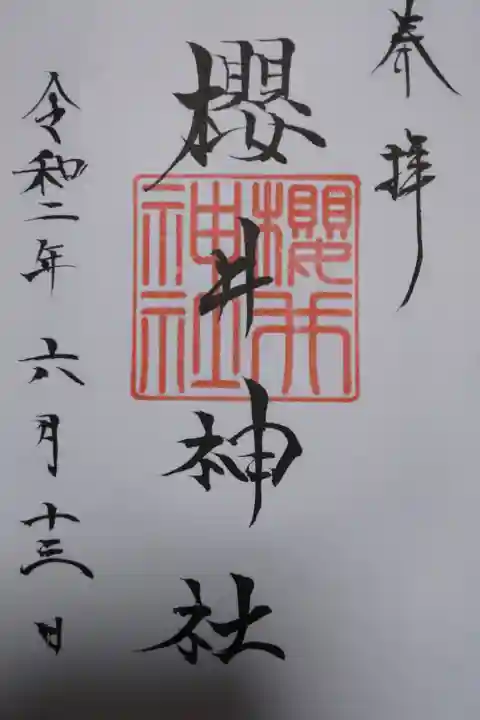 奉拝
櫻井神社
櫻井
神社
令和二年 六月十三日